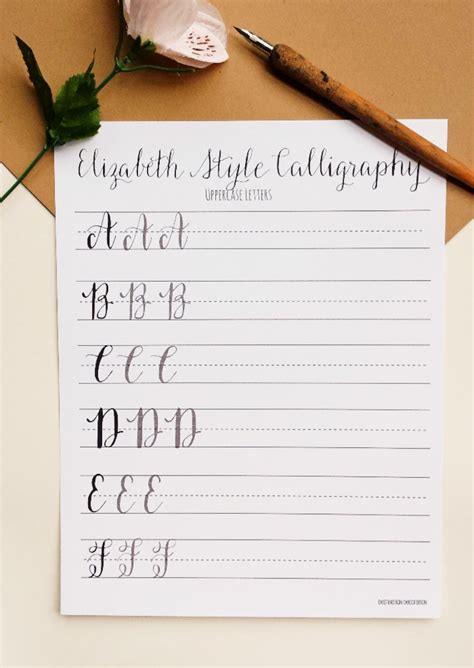 Elizabeth Style Calligraphy
UPPERCASE LETTERS
A A A
B B B
C C C
D D D
E E E
F F F